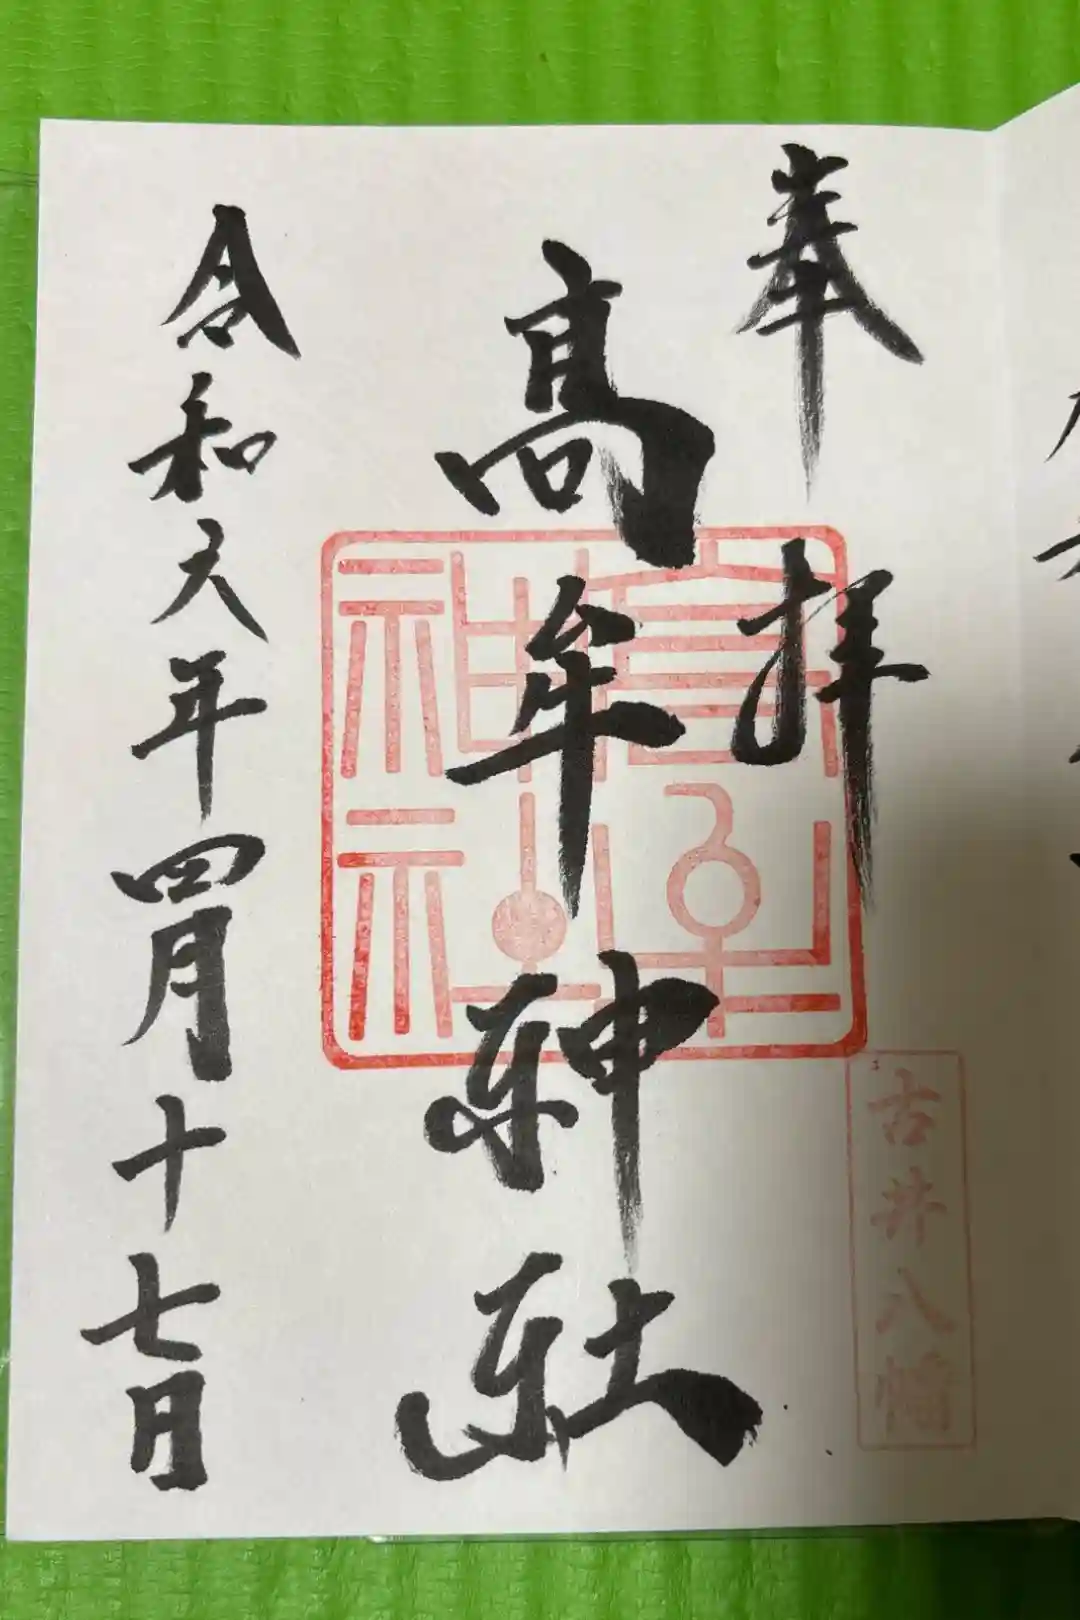 奉拝
髙牟神社
令和六年四月十七日
高牟神社
古井八幡